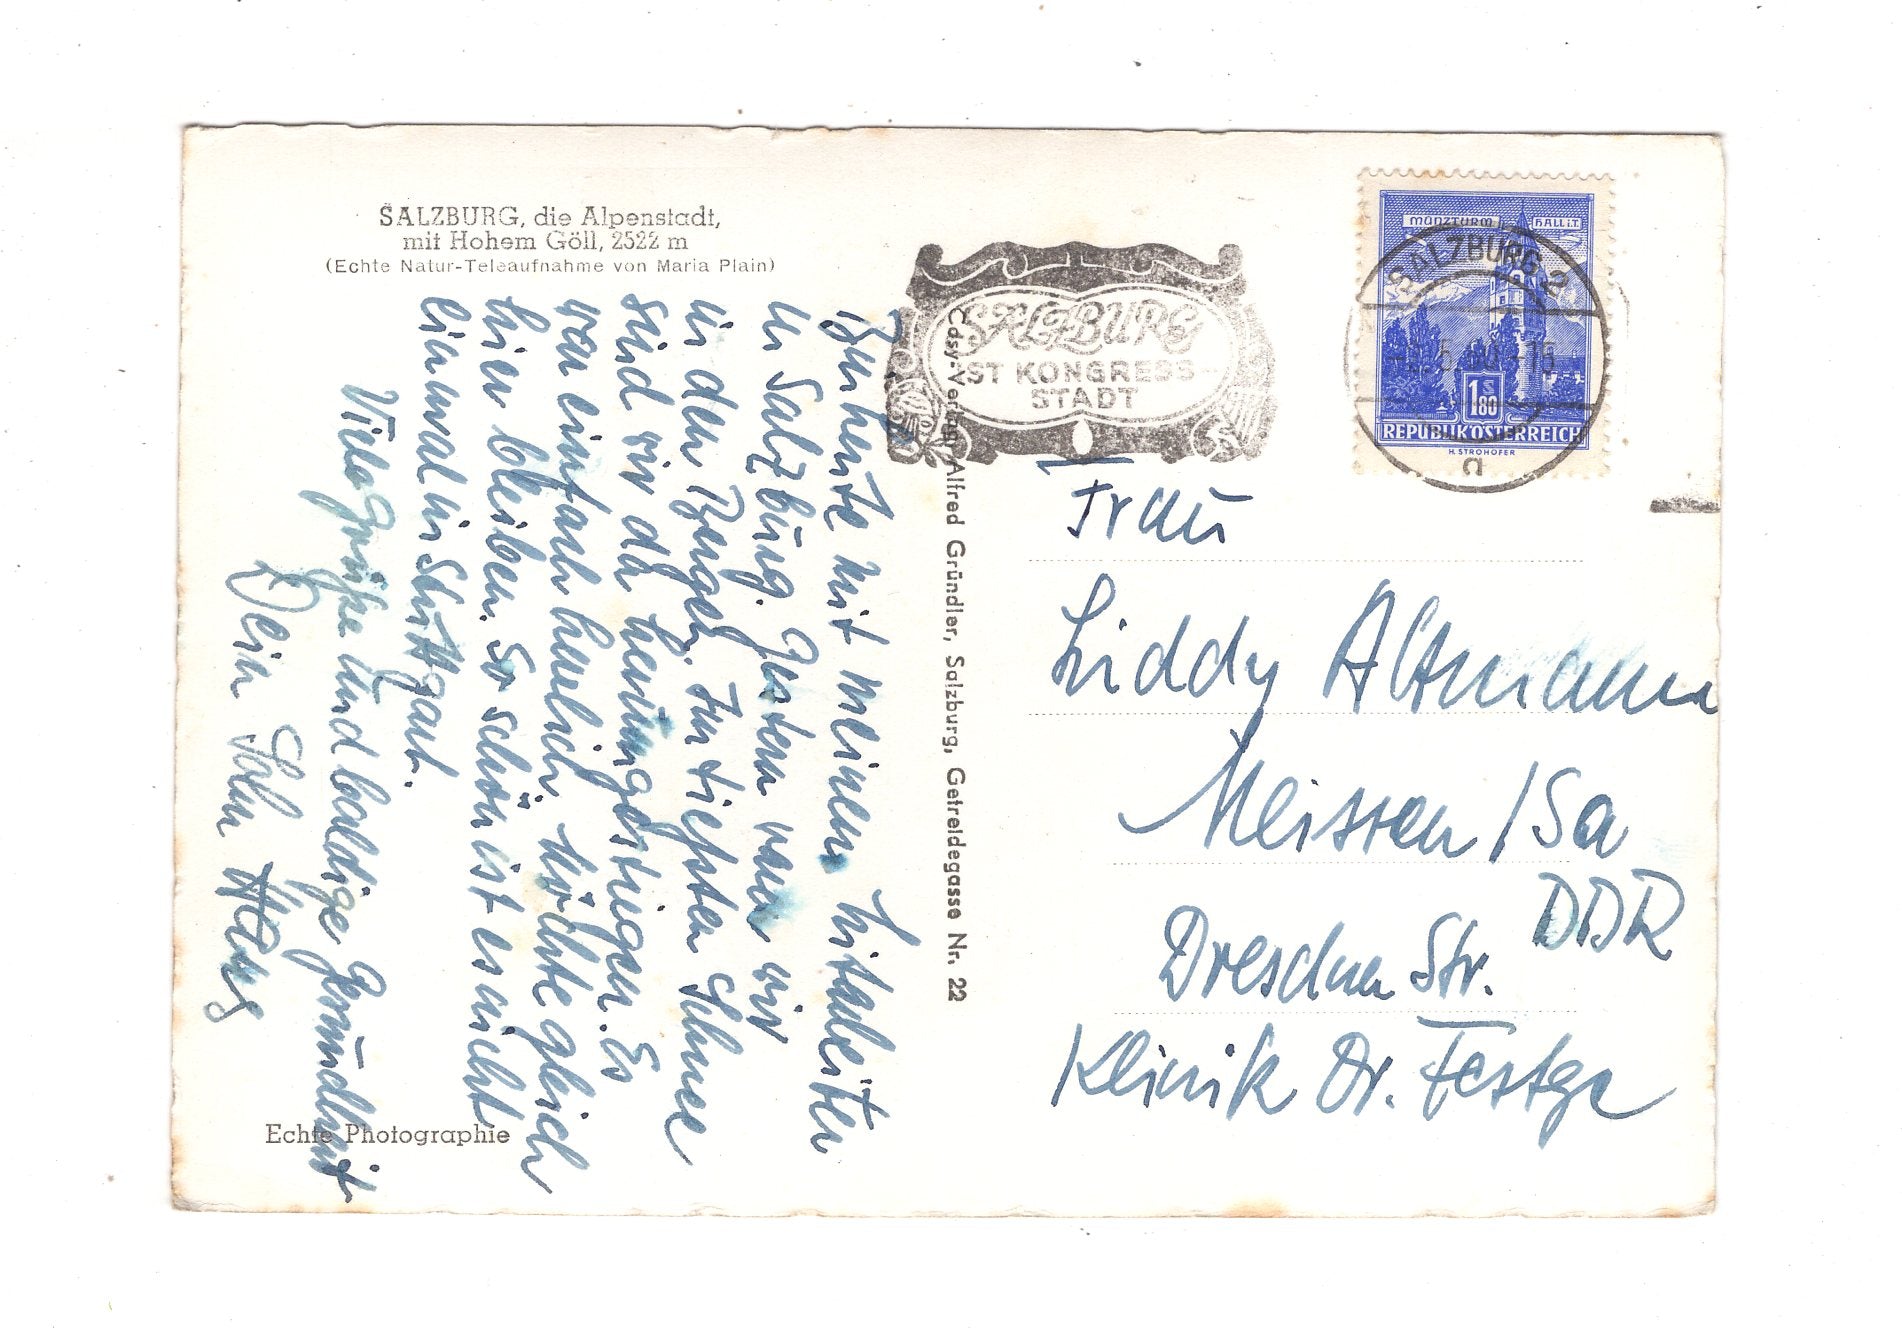 SALZBURG, die Alpenstadt,
mit Hohem Göll, 2522 m
(Echte Natur-Teleaufnahme von Maria Plain)
Bin heute mit meinen Mitarbeitern
in Salzburg. Gestern waren wir
in den Bergen. Im tiefsten Schnee
sind wir da herumgestiegen. Es
war einfach herrlich. Möchte gleich
hier bleiben. So schön ist es nicht
einmal in Stuttgart.
Viele Grüße und baldige Gesundheit
Dein Sohn Hans
Echte Photographie
Cosy-Verlag Alfred Gründler, Salzburg, Getreidegasse Nr. 22
SALZBURG
IST KONGRESS-
STADT
MÜNZTURM HALL i.T.
SALZBURG 2
1 S
80
REPUBLIK ÖSTERREICH
H. STROHOFER
Frau
Liddy Altmann
Meissen / Sa
DDR
Dresdner Str.
Klinik Dr. Festge